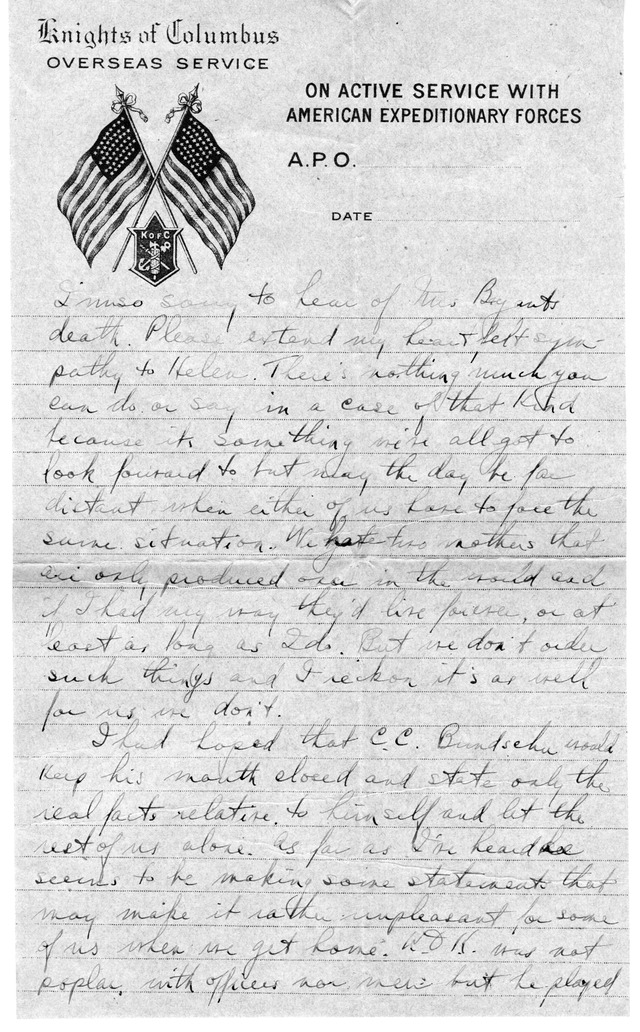 Knights of Columbus
OVERSEAS SERVICE
ON ACTIVE SERVICE WITH
AMERICAN EXPEDITIONARY FORCES
A.P.O.
DATE
K of C
I'm so sorry to hear of Mrs Bryants
death. Please extend my heart felt sym-
pathy to Helen. There's nothing much you
can do or say in a case of that kind
because its something we're all got to
look forward to but may the day be far
distant when either of us have to face the
same situation. We have two mothers that
are only produced once in the world and
if I had my way they'd live forever, or at
least as long as I do. But we don't order
such things and I reckon it's as well
for us we don't.
I had hoped that C.C. Bundschu would
keep his mouth closed and state only the
real facts relative to himself and let the
rest of us alone. As far as I've heard he
seems to be making some statements that
may make it rather unpleasant for some
of us when we get home. K.D.K. was not
poplar, with officers nor men but he played